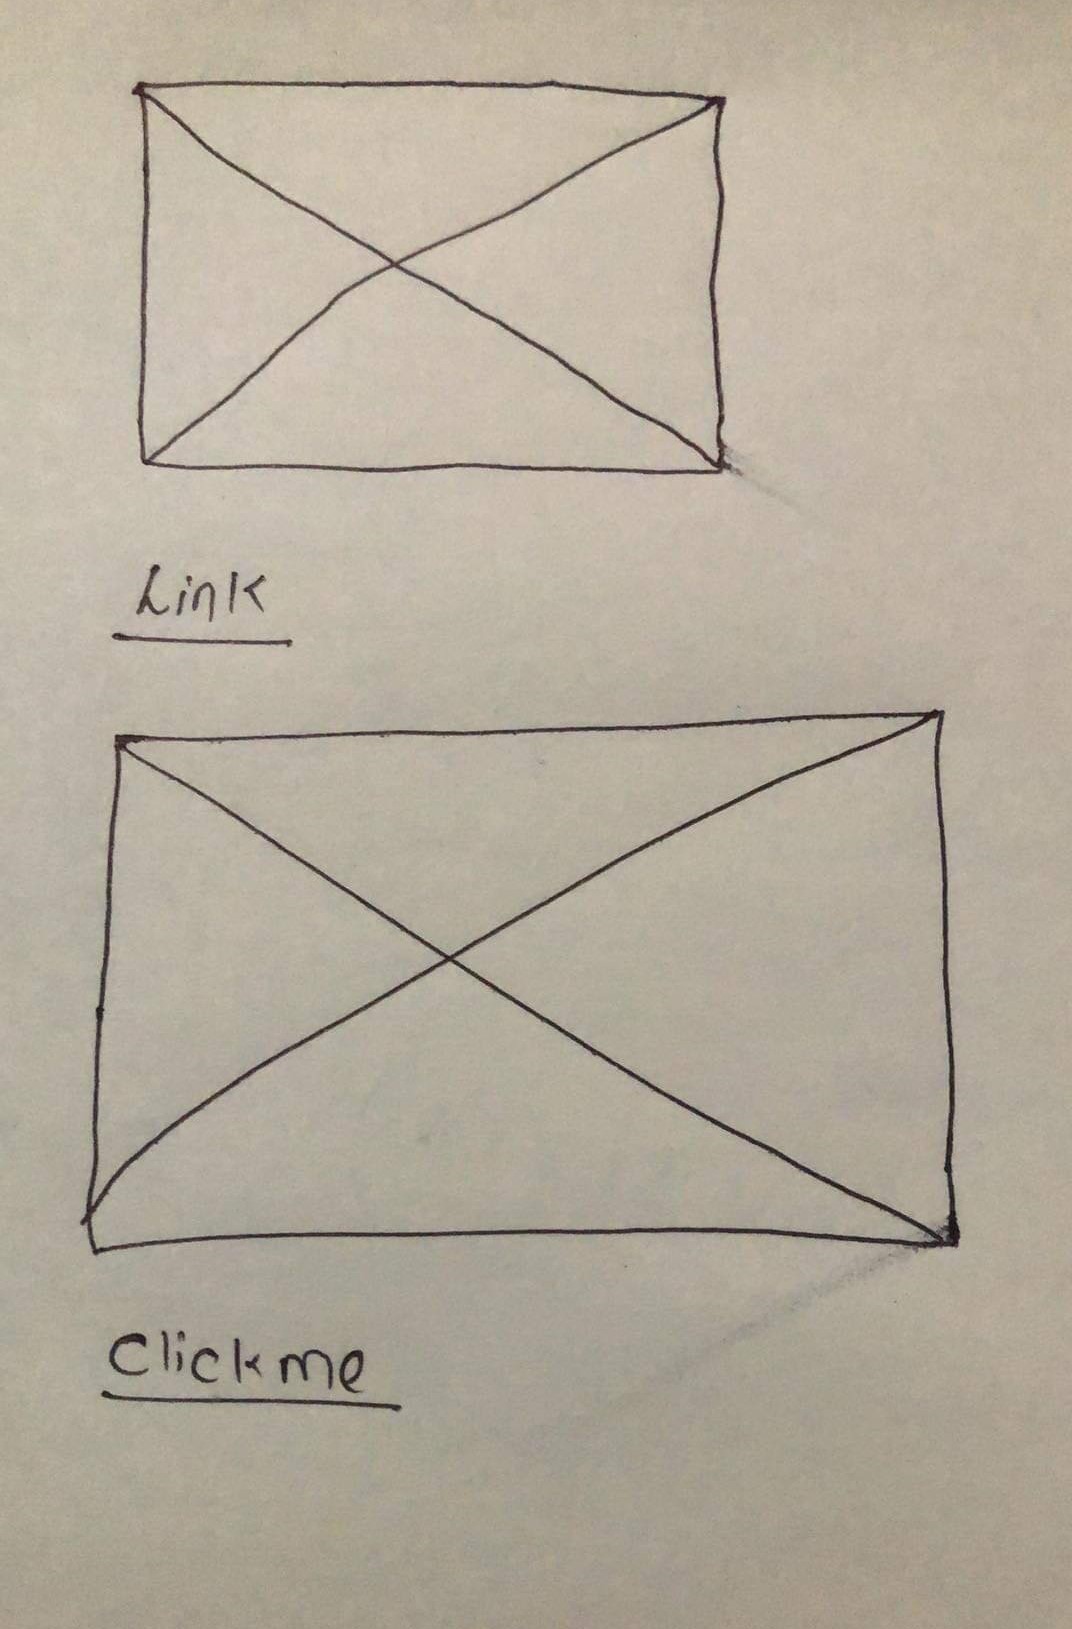 Link
Click me